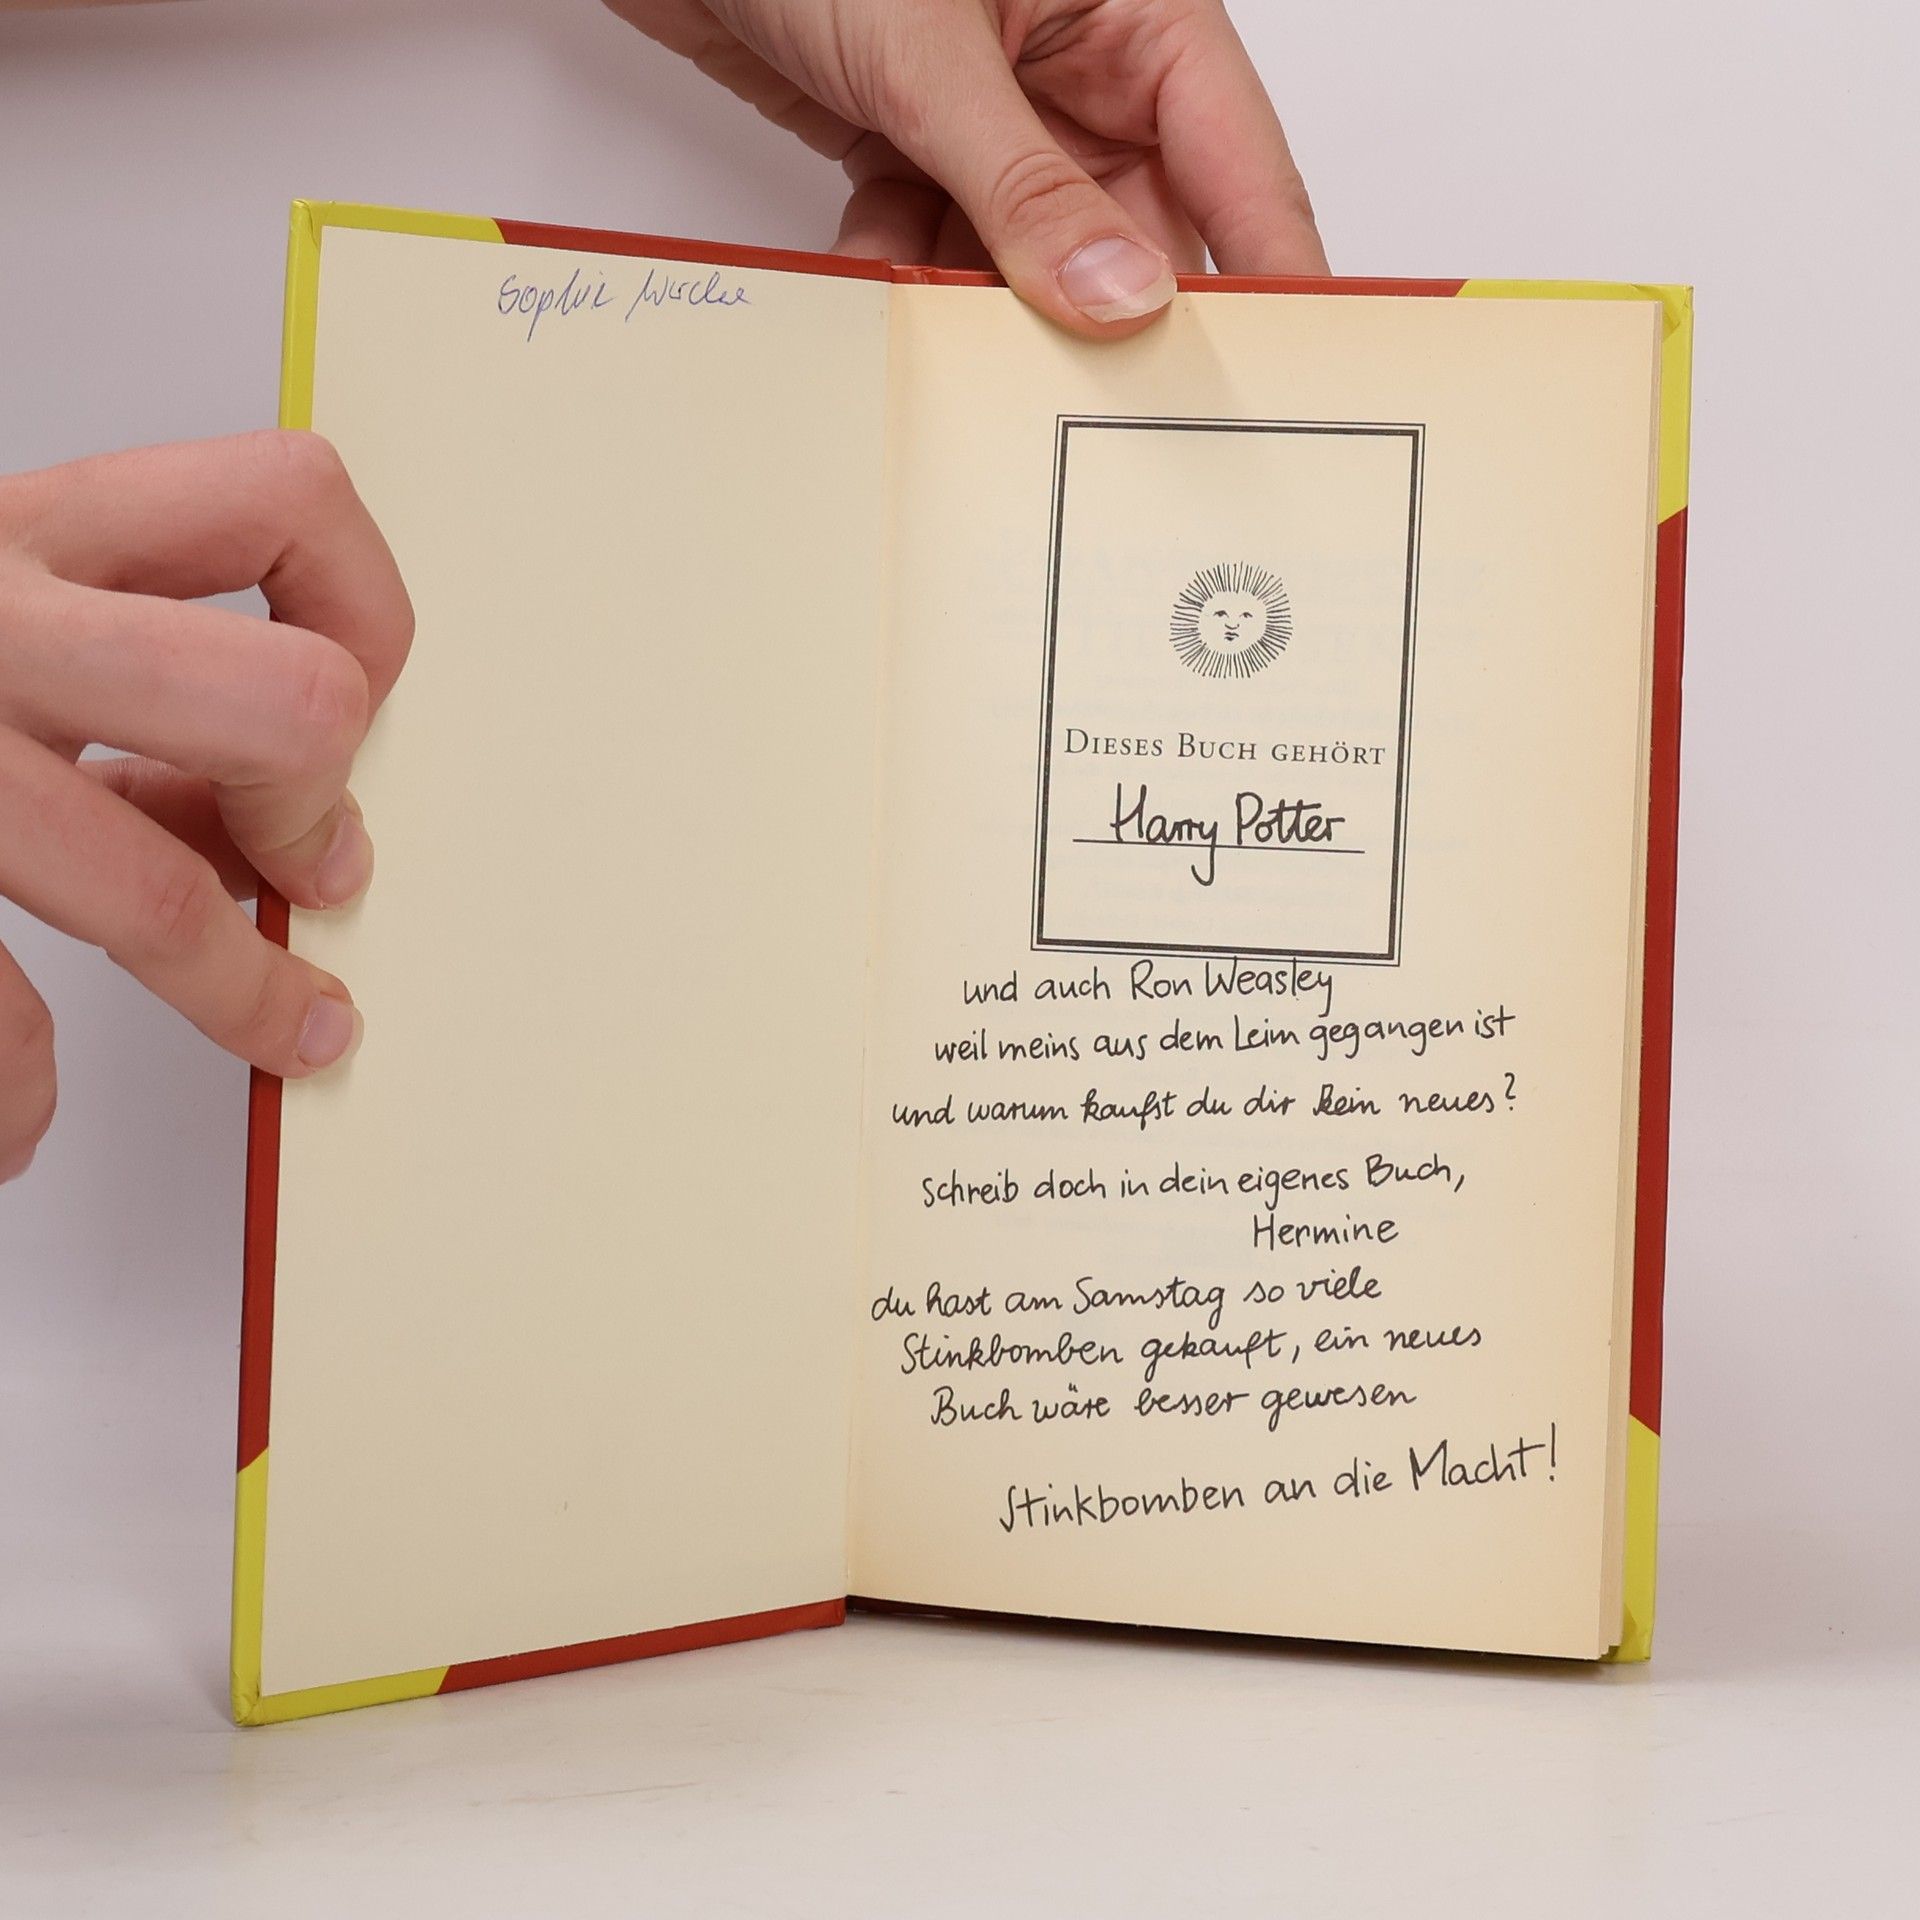 Sophie
DIESES BUCH GEHÖRT
Harry Potter
und auch Ron Weasley
weil meins aus dem Leim gegangen ist
und warum kaufst du dir kein neues?
schreib doch in dein eigenes Buch,
Hermine
du hast am Samstag so viele
Stinkbomben gekauft, ein neues
Buch wäre besser gewesen
Stinkbomben an die Macht!